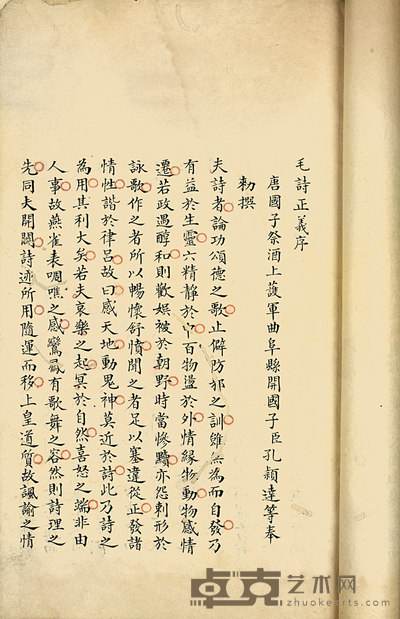 毛詩正義序
唐國子祭酒上護軍曲阜縣開國子臣孔穎達等奉
勑撰
夫詩者論功頌德之歌止僻防邪之訓雖無為而自發乃
有益於生靈六情靜於中百物盪於外情緣物動物感情
遷若政遇醇和則歡娛被於朝野時當慘黷亦怨剌形於
詠歌作之者所以暢懷舒憤聞之者足以塞違從正發諸
情性諧於律呂故曰感天地動鬼神莫近於詩此乃詩之
為用其利大矣若夫哀樂之起冥於自然喜怒之端非由
人事故燕雀表啁噍之感鸞鳳有歌舞之容然則詩理之
先同夫開闢詩迹所用隨運而移上皇道質故諷諭之情
卓克艺术网
zhuokearts.com